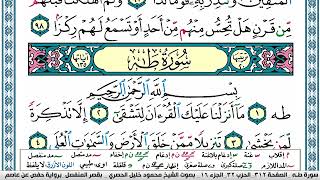 المتقين وتنذر به قوما لدا وكم أهلكنا قبلهم
مِّن قَرْنٍ هَلْ تُحِسُّ مِنْهُم مِّنْ أَحَدٍ أَوْ تَسْمَعُ لَهُمْ رِكْزًا ٩٨
سُورَةُ طه
بِسْمِ ٱللَّهِ ٱلرَّحْمَٰنِ ٱلرَّحِيمِ
طه ١ مَآ أَنزَلْنَا عَلَيْكَ ٱلْقُرْءَانَ لِتَشْقَىٰٓ ٢ إِلَّا تَذْكِرَةً
لِّمَن يَخْشَىٰ ٣ تَنزِيلًا مِّمَّنْ خَلَقَ ٱلْأَرْضَ وَٱلسَّمَٰوَٰتِ ٱلْعُلَى ٤
سورة طه الصفحة ٣١٢ الجزء ١٦ بصوت الشيخ محمود خليل الحصري بقصر المنفصل برواية حفص عن عاصم